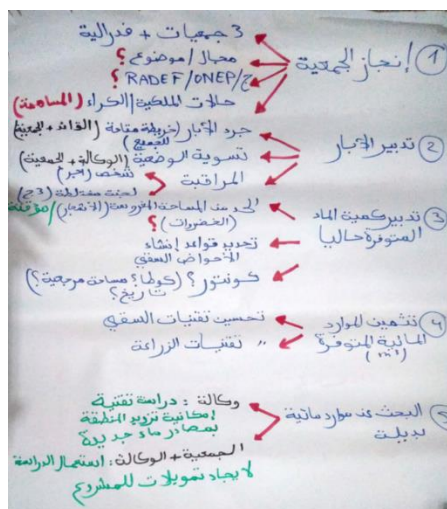 ① إنجاز الجمعية
3 جمعيات + فدرالية
مجال / موضوع ؟
ج / RADEF / ONEP ؟
حالات الملكية / الكراء (المساهمة)
② تدبير الآبار
جرد الآبار (خريطة متاحة للجميع) (القائد + الجمعية)
تسوية الوضعية (الوكالة + الجمعية)
المراقبة
شخص (أجر)
لجنة مختلطة (3ج)
③ تدبير كمية الماء
المتوفرة حاليا
الحد من المساحة المزروعة (الأشجار) / مؤقتة
(الخضروات) ؟
تحديد قواعد إنشاء
الأحواض السقي
كونتور ؟ (كولها ؟ مساحة مرجعية ؟
تاريخ ؟
④ تثمين الموارد
المائية المتوفرة
تحسين تقنيات السقي
〃 تقنيات الزراعة
5 البحث عن موارد مائية
بديلة
وكالة : دراسة تقنية
إمكانية تزويد المنطقة
بمصادر ماء جديدة
الجمعية + الوكالة : استعمال الدراسة
لايجاد تمويلات للمشروع